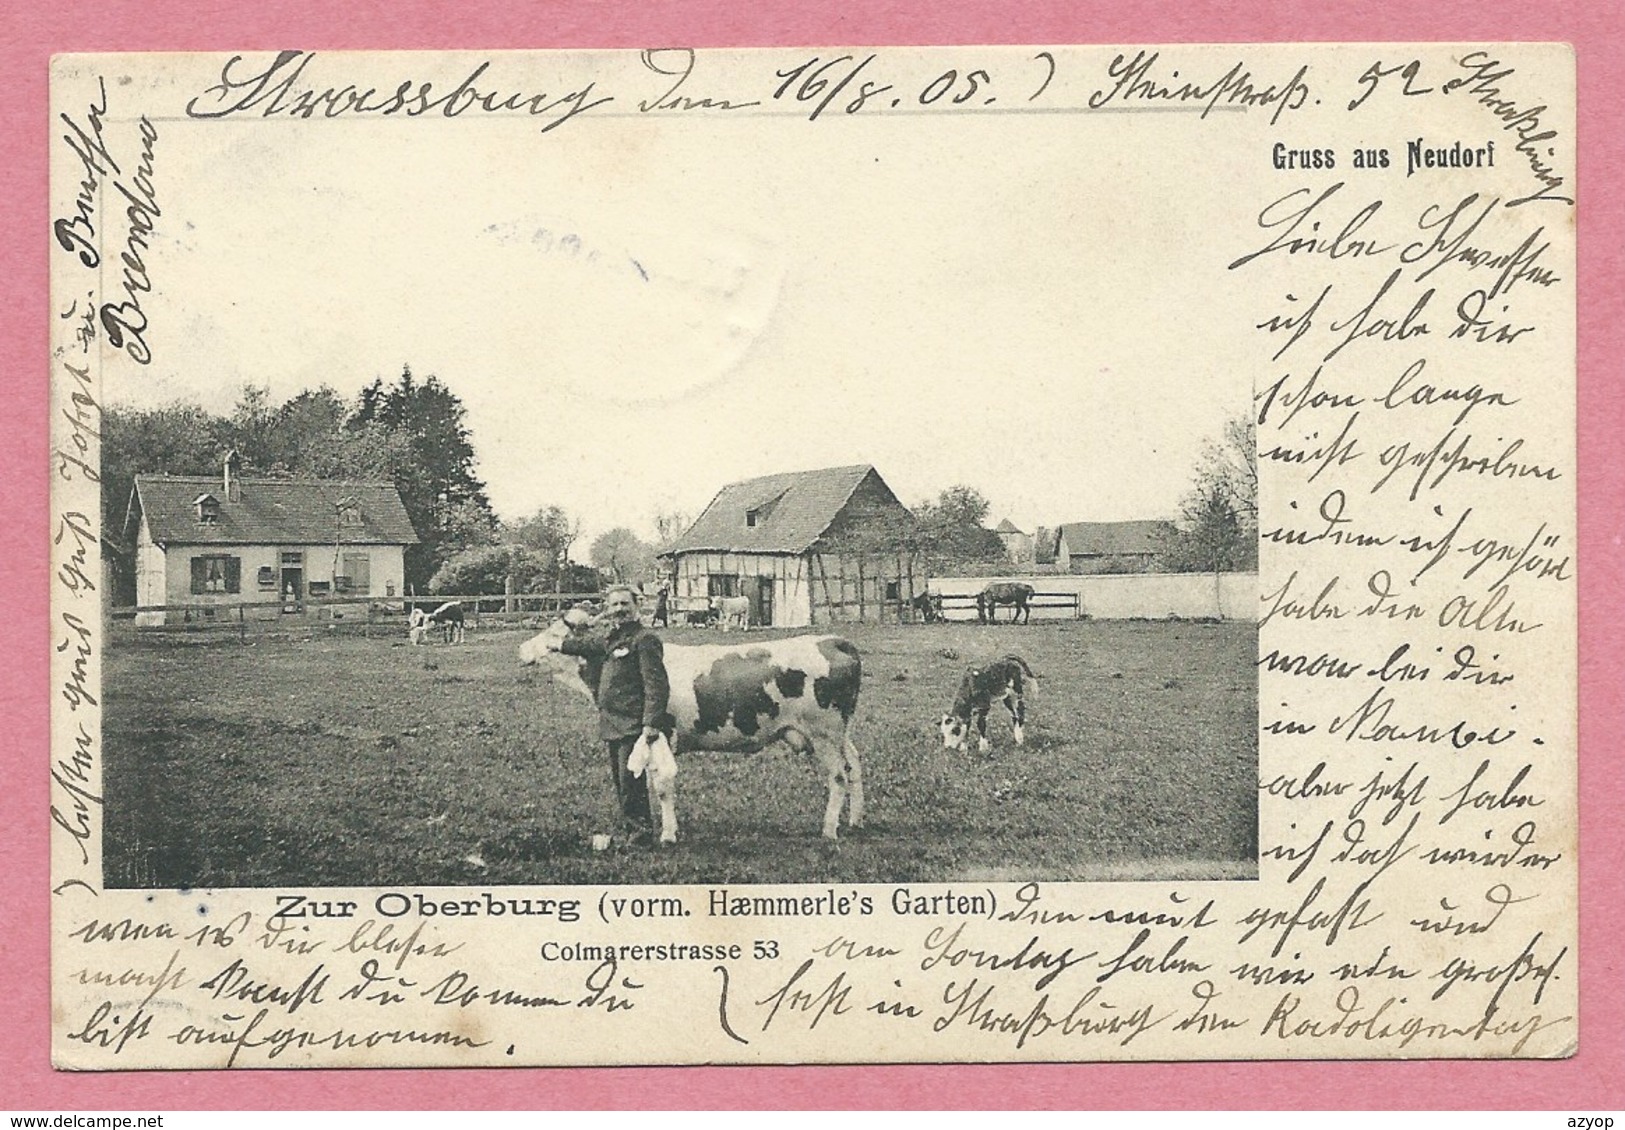 Strassburg den 16/8. 05. ) Steinstraß. 52 Straßburg
Gruss aus Neudorf
Liebe Schwester
ich habe dir
schon lange
nicht geschriben
indem ich gehört
habe die Alte
war bei dir
in
aber jetzt habe
ich doch wieder
den mut gefast und
am Sontag haben wir ein großes.
fest in Straßburg den Kadoligentag
Zur Oberburg (vorm. Hæmmerle's Garten)
Colmarerstrasse 53
wen es dir blesir
macht kanst du komen du
bist aufgenomen.
) bester grus Jospt u. Bertha
Brendano
azyop
www.delcampe.net